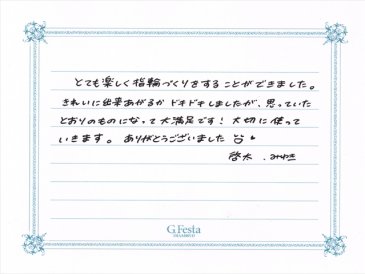 とても楽しく指輪づくりをすることができました。
きれいに出来あがるかドキドキしましたが、思っていた
とおりのものになって大満足です！大切に使って
いきます。ありがとうございました
啓太 . みゆき
G.Festa